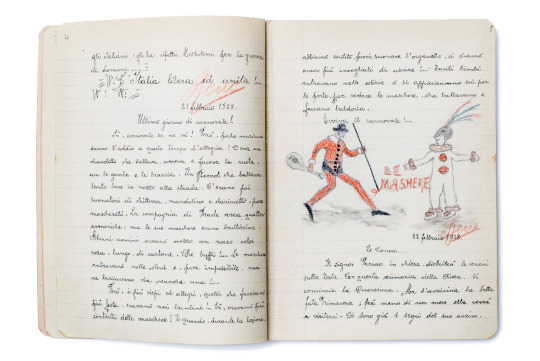 4
gli italiani; gli ha
Mussolini per la guerra
di domani:
W! Italia libera ed unita!...
W! W!
21 febbraio 1928.
Ultimo giorno di carnevale!
Sì, carnevale se ne va! Però, prima
danno l'addio a questo tempo d'allegria! C'era un
diavoletto che saltava, correva e faceva la ruota
con le gambe e le braccia. Un Pierrot che ballava
tanto bene in mezzo alla strada. C'erano poi
suonatori di chitarra, mandolino e clarinetto, pure
mascherati. La compagnia di Prade aveva quattro
armoniche; ma le sue maschere erano bruttissime.
Alcuni uomini avevano messo un naso color
rosa, lungo, di cartone. Che buffi!... Le maschere
entravano nelle osterie e, pure impossibile, non
ne lasciavano via neanche una!...
Però, i più vispi ed allegri, quelli che facevano
più festa, eravamo noi bambini! Sì, eravamo più
contenti delle maschere! E quando, durante la lezione,
abbiamo sentito, fuori, suonare l'organetto, ci siamo
ancor più invogliati di uscire!... Tanti bimbi
entravano nelle osterie e si
le porte, per vedere le maschere, che ballavano e
facevano baldoria.
Evviva il carnevale!...
LE
MASHERE
22 febbraio 1928.
Le Ceneri.
Il signor Parroco in chiesa, distribuì le ceneri
sulla testa. Con questa cerimonia della Chiesa, si
comincia la Quaresima. Ma s'avvicina la bella,
Primavera; fra meno di un mese ella verrà
a visitarci. Ci sono già i segni del suo arrivo.